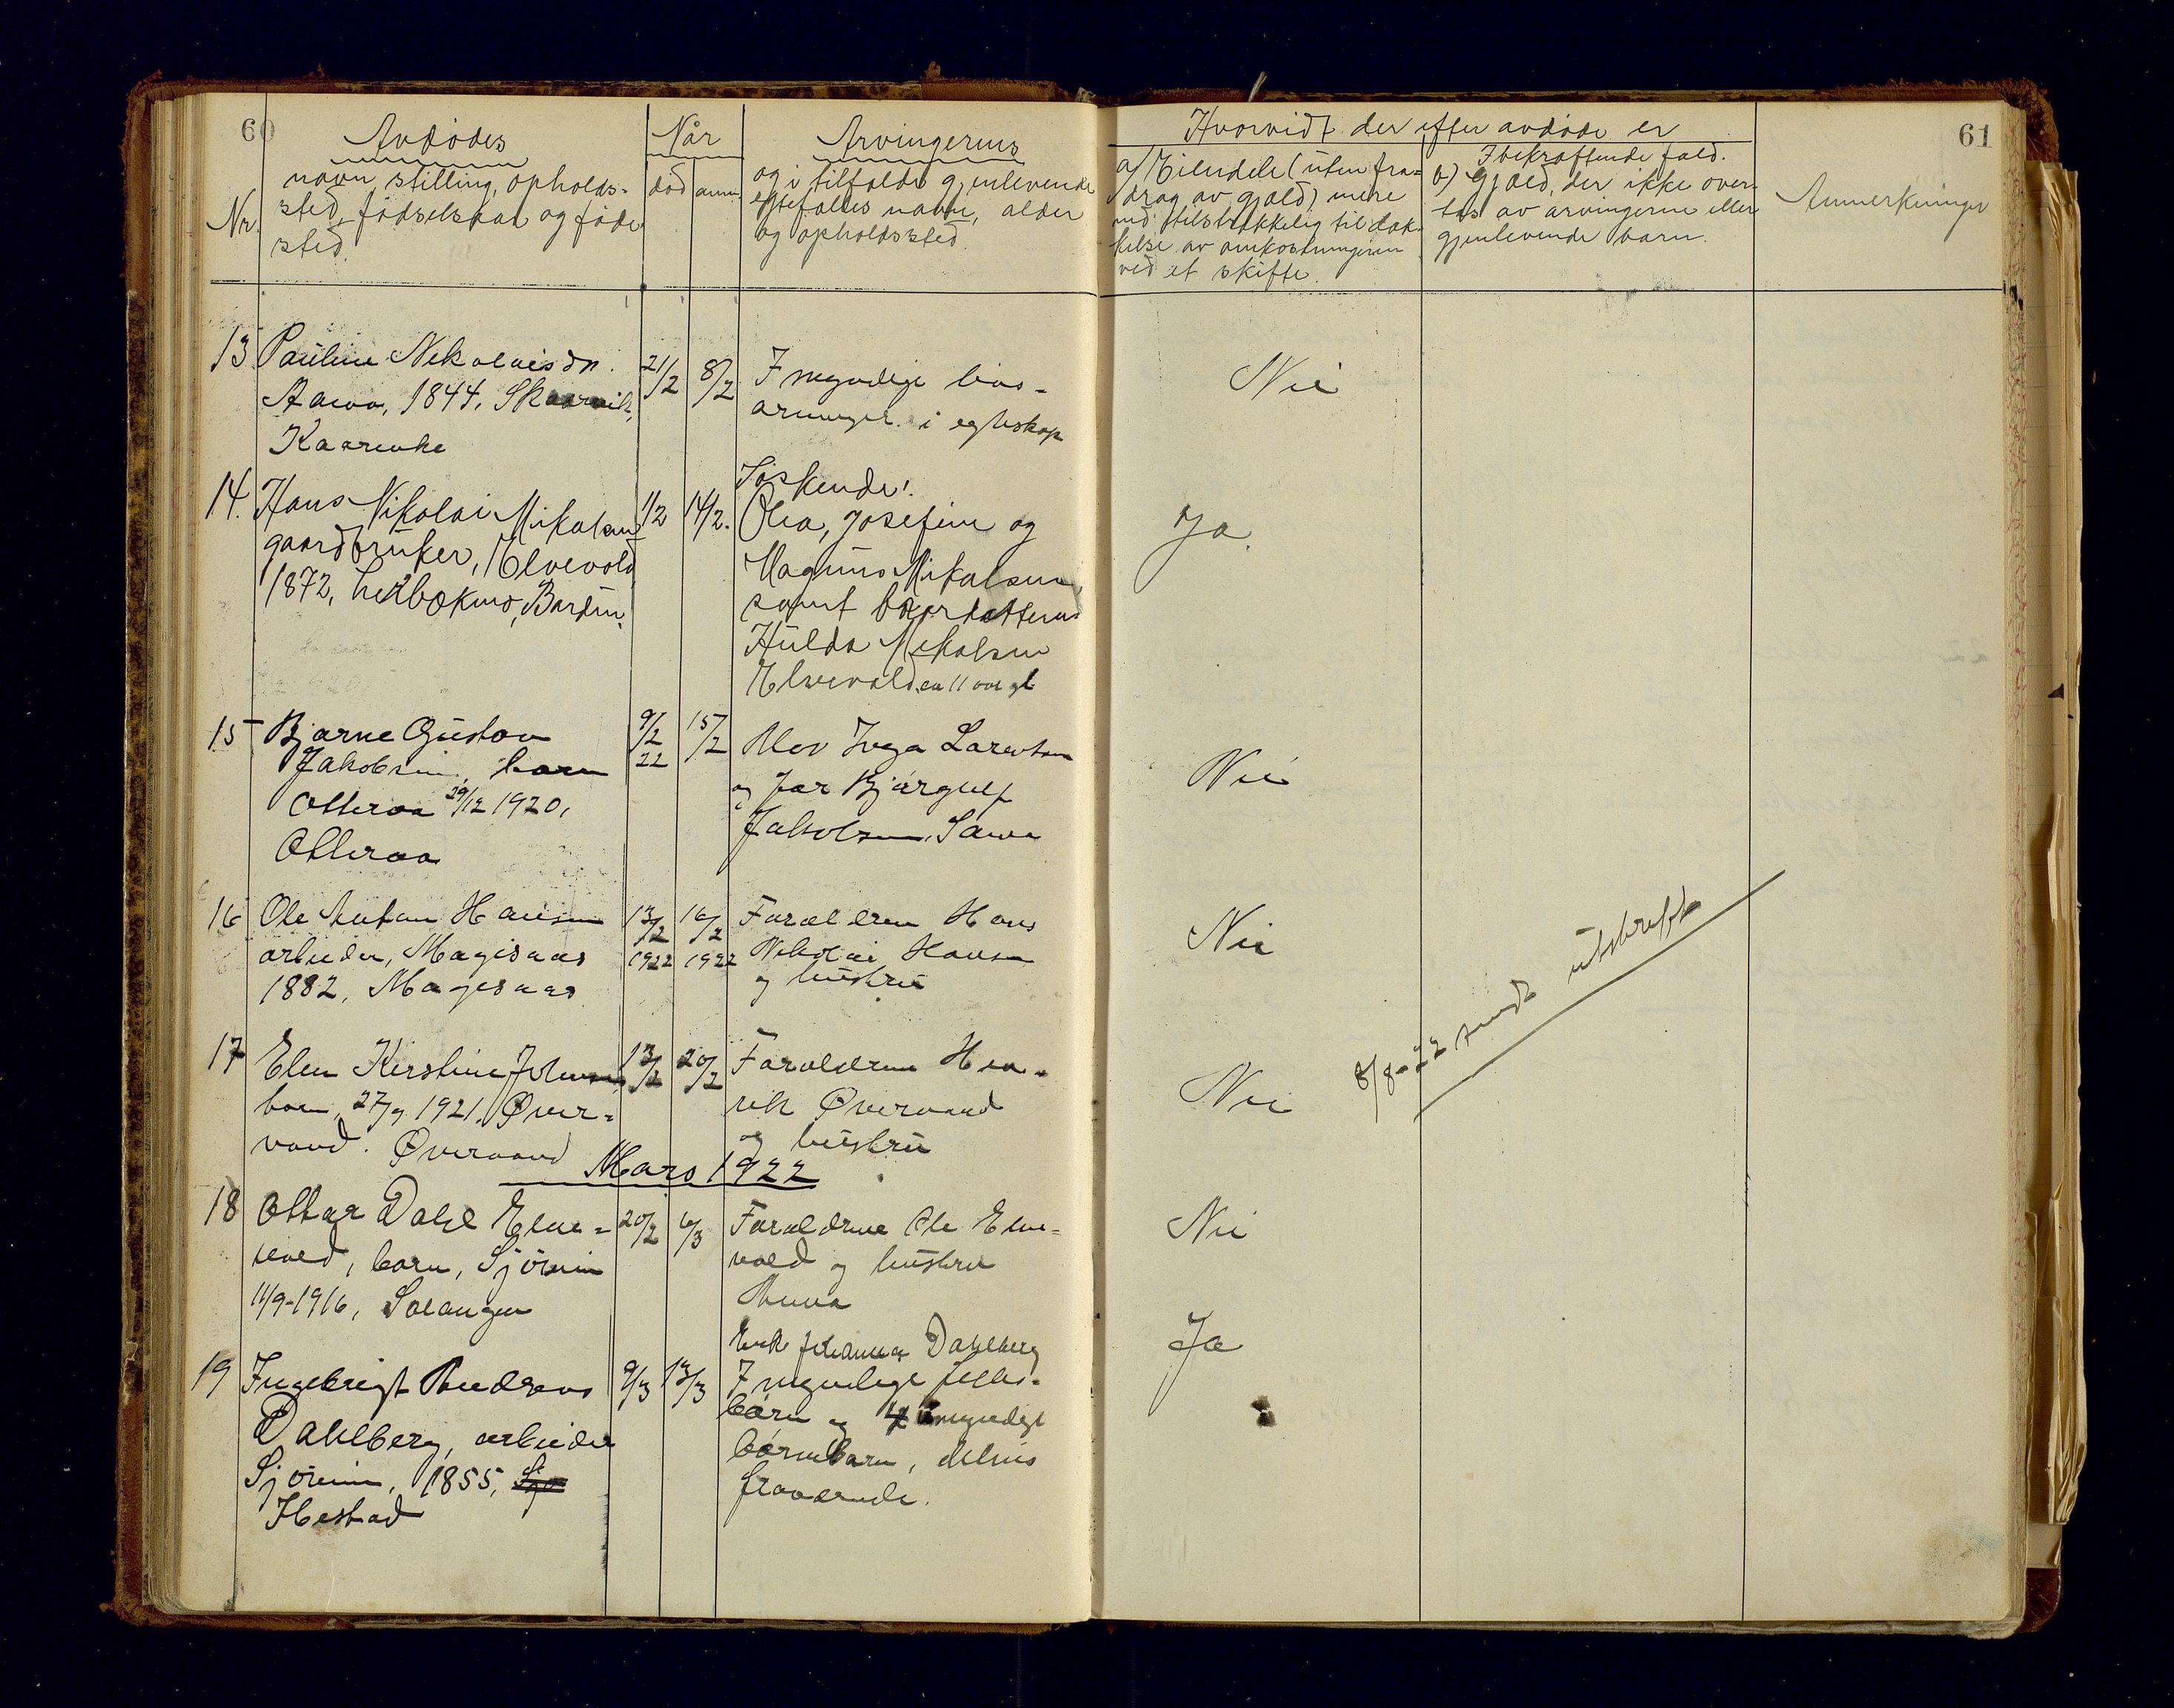 60
Nr.
Avdødes
navn stilling, opholds-
sted, fødselsaar og føde
sted.
Når
død anm
Arvingernes
og i tilfælde gjenlevende
egtefælles navn, alder
og opholdssted.
Hvorvidt der efter avdøde er
a) Eiendele (uten fra-
drag av gjæld) mere
end tilstrækkelig til dæk-
kelse av omkostningerne
ved et skifte.
I bekræftende fald.
b) Gjæld, der ikke over-
tas av arvingerne eller
gjenlevende barn.
Anmerkninger
61
13 Pauline Nikolaisdr. 21/2 8/2 7 myndige livs-
arvinger i egteskap Nei
1844,
14. Hans Nikolai Mikalsen 1/2 14/2.
gaardbruker, Elvevold
1872, Bardu.
Søskende:
Olea, Josefine og
Magnus Mikalsen,
samt brordatteren
Hulda Mikalsen
Elvevold, 11 aar gl
Ja.
15 Bjarne Gustav 9/2 22 15/2
Jakobsen, barn
Otteraa 29/12 1920,
Otteraa
Mor Inga
og far Bjørgulf
Jakobsen,
Nei
16 Ole Anton Hansen 13/2 1922 16/2 1922
arbeider, Magesaas
1882, Magesaas
Forældrene Hans
Nikolai Hansen
og hustru
Nei
17 Elen Kirstine Johnsen 13/2 20/2
barn, 27/9 1921. Øver-
vand. Øvervand
Forældrene Hen-
rik Øvervand
og hustru
Nei
8/8-22 sendt utskrift
Mars 1922
18 Ottar Dahl Elve- 20/2 6/3
vold, barn, Sjøvein
11/9-1916, Salangen
Forældrene Ole Elve-
vold og hustru
Anna
Nei
19 Ingebrigt Andreas 9/3 13/3
Dahlberg, arbeider
Sjøvein, 1855, Sjø
Ibestad
Enke Johanna Dahlberg
7 myndige felles-
børn og 4 umyndige
børnebarn, delvis
fraværende.
Ja